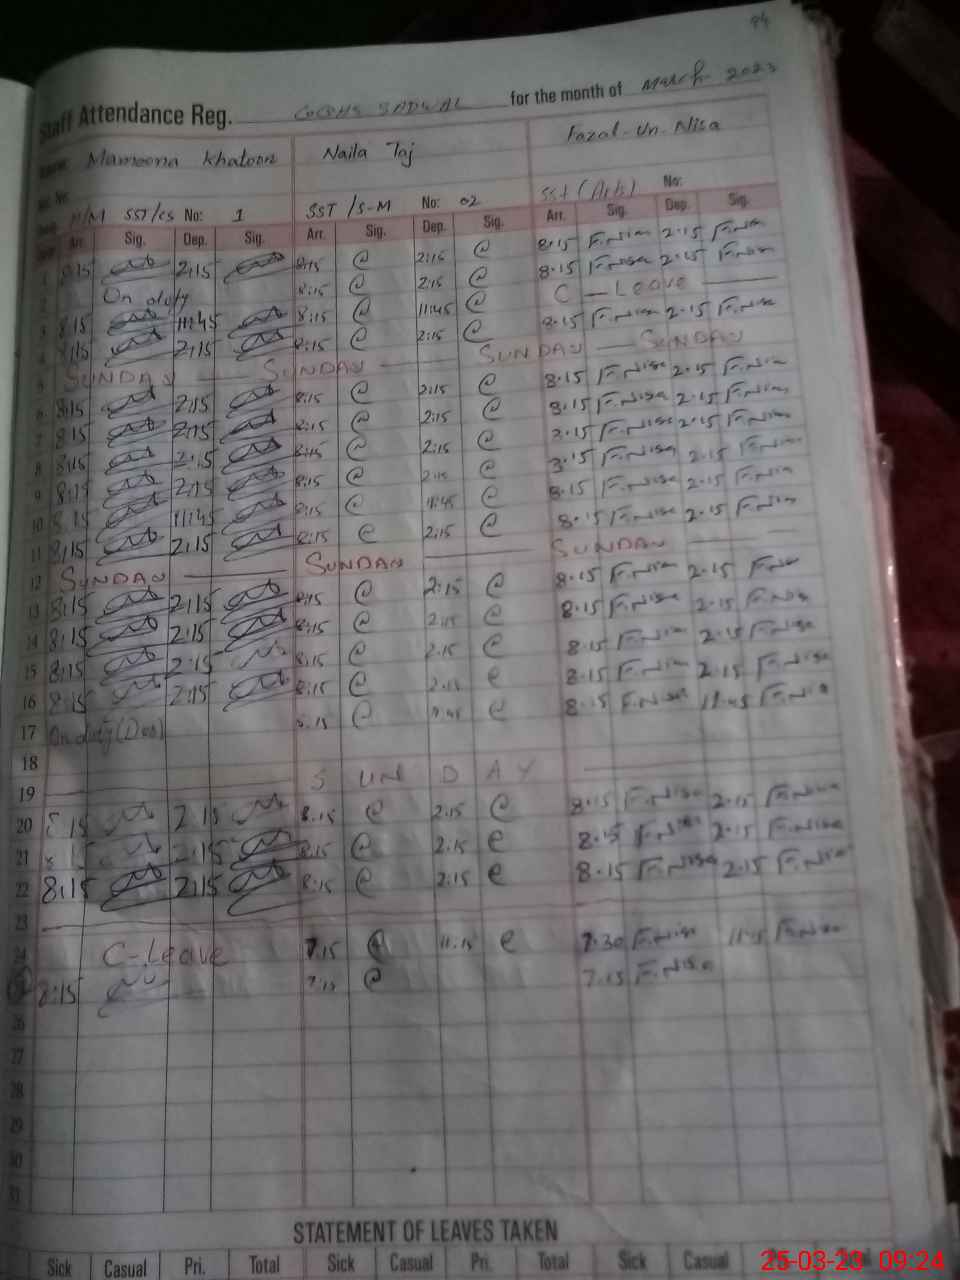 94
Staff Attendance Reg. GGCMHS SADWAL for the month of March 2023
Name: Mameona Khatoon Naila Taj Fazal-Un-Nisa
H/M SST/CS No: 1 SST /S-M No: 02 SST (Arts) No:
Arr. Sig. Dep. Sig. Arr. Sig. Dep. Sig. Arr. Sig. Dep. Sig.
1 8:15 2:15 8:15 @ 2:15 @ 8:15 F.Nisa 2.15 F.Nisa
2 On duty 8:15 @ 2:15 @ 8.15 F.Nisa 2.15 F.Nisa
3 8:15 11:45 8:15 @ 11:45 @ C - Leave
4 8:15 2:15 8:15 @ 2:15 @ 8.15 F.Nisa 2.15 F.Nisa
5 SUNDAY SUNDAY SUNDAY SUNDAY
6 8:15 2:15 8:15 @ 2:15 @ 8.15 F.Nisa 2.15 F.Nisa
7 8:15 2:15 8:15 @ 2:15 @ 8.15 F.Nisa 2.15 F.Nisa
8 8:15 2:15 8:15 @ 2:15 @ 8.15 F.Nisa 2.15 F.Nisa
9 8:15 2:15 8:15 @ 2:15 @ 8.15 F.Nisa 2.15 F.Nisa
10 8:15 11:45 8:15 @ 11:45 @ 8.15 F.Nisa 2.15 F.Nisa
11 8:15 2:15 8:15 @ 2:15 @ 8.15 F.Nisa 2.15 F.Nisa
12 SUNDAY SUNDAY SUNDAY
13 8:15 2:15 8:15 @ 2:15 @ 8.15 F.Nisa 2.15 F.Nisa
14 8:15 2:15 8:15 @ 2:15 @ 8.15 F.Nisa 2.15 F.Nisa
15 8:15 2:15 8:15 @ 2.15 @ 8.15 F.Nisa 2.15 F.Nisa
16 8:15 2:15 8:15 @ 2.15 @ 8.15 F.Nisa 2.15 F.Nisa
17 On duty (Deo) 8.15 @ 11.45 @ 8.15 F.Nisa 11.45 F.Nisa
18
19 S U N D A Y
20 8:15 2:15 8:15 @ 2.15 @ 8.15 F.Nisa 2.15 F.Nisa
21 8:15 2:15 8:15 @ 2.15 @ 8.15 F.Nisa 2.15 F.Nisa
22 8:15 2:15 8:15 @ 2:15 @ 8.15 F.Nisa 2.15 F.Nisa
23
24 C-Leave 7:15 @ 11.15 @ 7.30 F.Nisa 11.15 F.Nisa
8:15 7:15 @ 7.15 F.Nisa
26
27
28
29
30
31
STATEMENT OF LEAVES TAKEN
Sick Casual Pri. Total Sick Casual Pri. Total Sick Casual
25-03-23 09:24